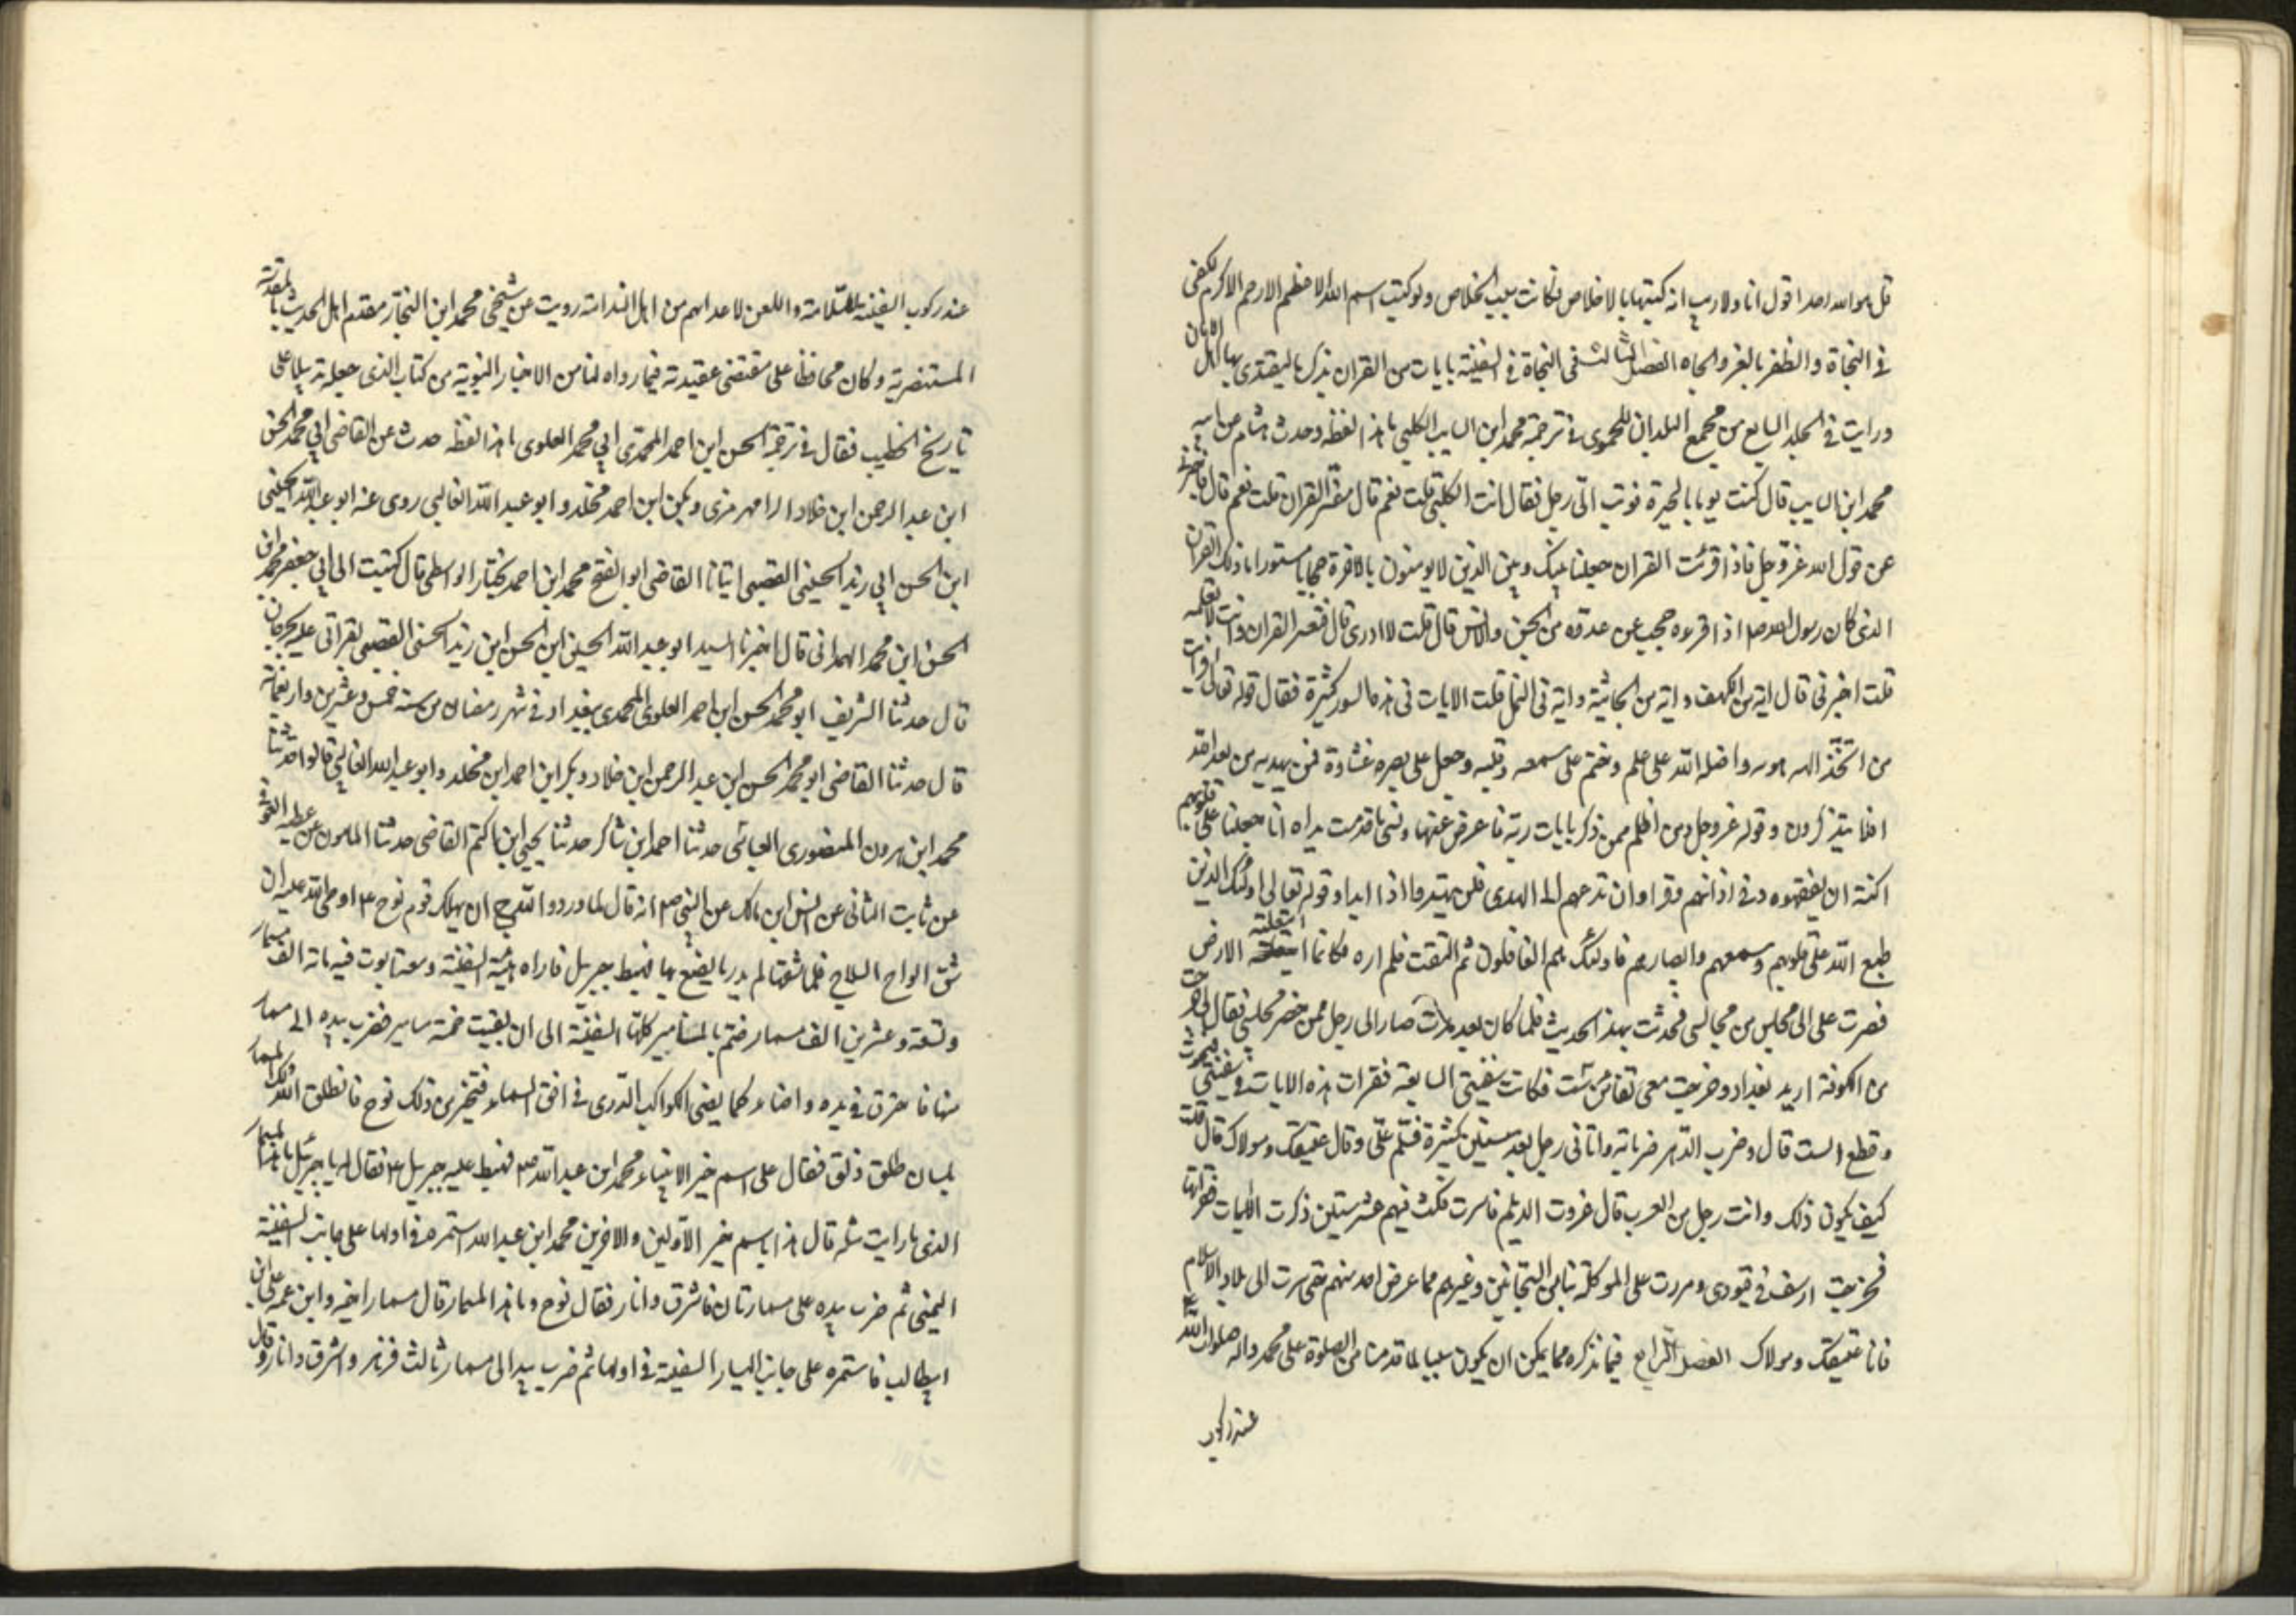 قل هو الله احد اقول انا ولا ريب انه كتبها بالاخلاص فكانت سبب الخلاص ولو كتبت اسم الله الاعظم الارحم الاكرم لكفى
فى النجاة والظفر بالعز والجاه الفصل الثالث فى النجاة فى السفينة بايات من القران نذكرها ليقتدى بها اهل الايمان
ورايت فى الجلد السابع من مجمع البلدان للحموى فى ترجمة محمد ابن السايب الكلبى باهذا لفظه وحدث هشام عن ابيه
محمد ابن السايب قال كنت يوما بالحيرة فوثب الىّ رجل فقال انت الكلبى قلت نعم قال مفسّر القران قلت نعم قال فاخبرنى
عن قول الله عز وجل فاذا قرئت القران جعلنا بينك وبين الذين لا يومنون بالاخرة حجابا مستورا ما ذلك القران
الذى كان رسول الله ص اذا قرءه حجب عن عدوه من الجن والانس قال قلت لا ادرى قال فتفسر القران وانت لا تعلمه
قلت اخبرنى قال اية من الكهف واية من الجاثية واية فى النحل قلت الايات فى هذه السور كثيرة فقال قوله تعالى افرايت
من اتخذ الهه هويه واضله الله على علم وختم على سمعه وقلبه وجعل على بصره غشاوة فمن يهديه من بعد الله
افلا يتذكرون وقوله عز وجل ومن اظلم ممن ذكر بايات ربه فاعرض عنها ونسى ما قدمت يداه انا جعلنا على قلوبهم
اكنة ان يفقهوه وفى اذانهم وقرا وان تدعهم الى الهدى فلن يهتدوا اذا ابدا وقوله تعالى اولئك الذين
طبع الله على قلوبهم وسمعهم وابصارهم فاولئك هم الغافلون ثم التفت فلم اره فكانما ابتلعته الارض
فصرت على الى مجلس من مجالسى فحدثت بهذا الحديث فلما كان بعد مدّة صار الى رجل ممن حضر مجلسى فقال لى خرجت
من الكوفة اريد بغداد وخرجت معى سفاين ست فكانت سفينتى السابعة فقرات هذه الايات فى سفينتى فنجوت
وقطع الست قال وضرب الدهر ضرباته واتانى رجل بعد سنين كثيرة فسلّم علىّ وقال عتيقك ومولاك قال قلت
كيف يكون ذلك وانت رجل من العرب قال غزوت الديلم فاسرت فمكثت فيهم عشر سنين ذكرت الايات فقراتها
فخرجت ارسف فى قيودى ومررت على الموكلة بنا من السجانين وغيرهم مما عرض احد منهم حتى سرت الى بلاد الاسلام
فانا عتيقك ومولاك الفصل الرابع فيما نذكره مما يمكن ان يكون سببا لما قدمنا من الصلوة على محمد واله صلوات الله عليهم
عند ركوب
عند ركوب السفينة للسّلامة واللعن لاعدائهم من اهل الندامة رويت عن شيخى محمد ابن النجّار مقدم اهل الحديث بالمدرسة
المستنصرية وكان محافظا على مقتضى عقيدته فيما رواه لنا من الاخبار النبوية من كتاب الذى جعله تذييلا على
تاريخ الخطيب فقال فى ترجمة الحسن ابن احمد المحمّدى ابى محمد العلوى باهذا لفظه حدث عن القاضى ابى محمد الحسن
ابن عبد الرحمن ابن خلاد الرامهرمزى وبكر ابن احمد مخلد وابو عبد الله الغالبى روى عنه ابو عبد الله الحسين
ابن الحسن ابى زيد الحسينى القصبى انبانا القاضى ابو الفتح محمد ابن احمد بختيار الواسطى قال كتبت الى ابى جعفر محمد ابن
الحسن ابن محمد الهمدانى قال اخبرنا السيد ابو عبد الله الحسين ابن الحسن ابن زيد الحسنى القصبى لقراتى عليه بجرجان
قال حدثنا الشريف ابو محمد الحسن ابن احمد العلوى المحمدى ببغداد فى شهر رمضان من سنة خمس وعشرين واربعمائة
قال حدثنا القاضى ابو محمد الحسن ابن عبد الرحمن ابن خلاد وبكر ابن احمد ابن مخلد وابو عبد الله الغالبى قالوا حدثنا
محمد ابن هرون المنصورى العباسى حدثنا احمد ابن شاكر حدثنا يحيى ابن اكثم القاضى حدثنا المامون عن عطيه العوفى
عن ثابت البنانى عن انس ابن مالك عن النبى ص انه قال لما ورد الله ج ان يهلك قوم نوح ع اوحى الله عليه ان
شق الواح الساج فلما شقها لم يدر ما يصنع بها فهبط جبريل فاراه هيئة السفينة ومعه تابوت فيه ماته الف مسمار
وتسعة وعشرين الف مسمار ضم بالمسامير كلها السفينة الى ان بقيت خمسة مسامير فضرب بيده الى مسمار
منها فاشرق فى يده واضاء كما يضئ الكواكب الدّرى فى افق السماء فتحير من ذلك نوح فانطلق الله ذلك المسمار
بلسان طلق ذلق فقال على اسم خير الانبياء محمد ابن عبد الله ص فهبط عليه جبريل ع فقال له يا جبرئيل ما هذا المسمار
الذى ما رايت مثله قال هذا باسم خير الاولين والاخرين محمد ابن عبد الله استمره فى اولها على جانب السفينة
اليمنى ثم ضرب بيده على مسمار ثان فاشرق وانار فقال نوح وما هذا المسمار قال مسمار اخيه وابن عمه على ابن
ابيطالب فاستمره على جانب اليسار السفينة فى اولها ثم ضرب بيده الى مسمار ثالث فزهر واشرق وانار وقال